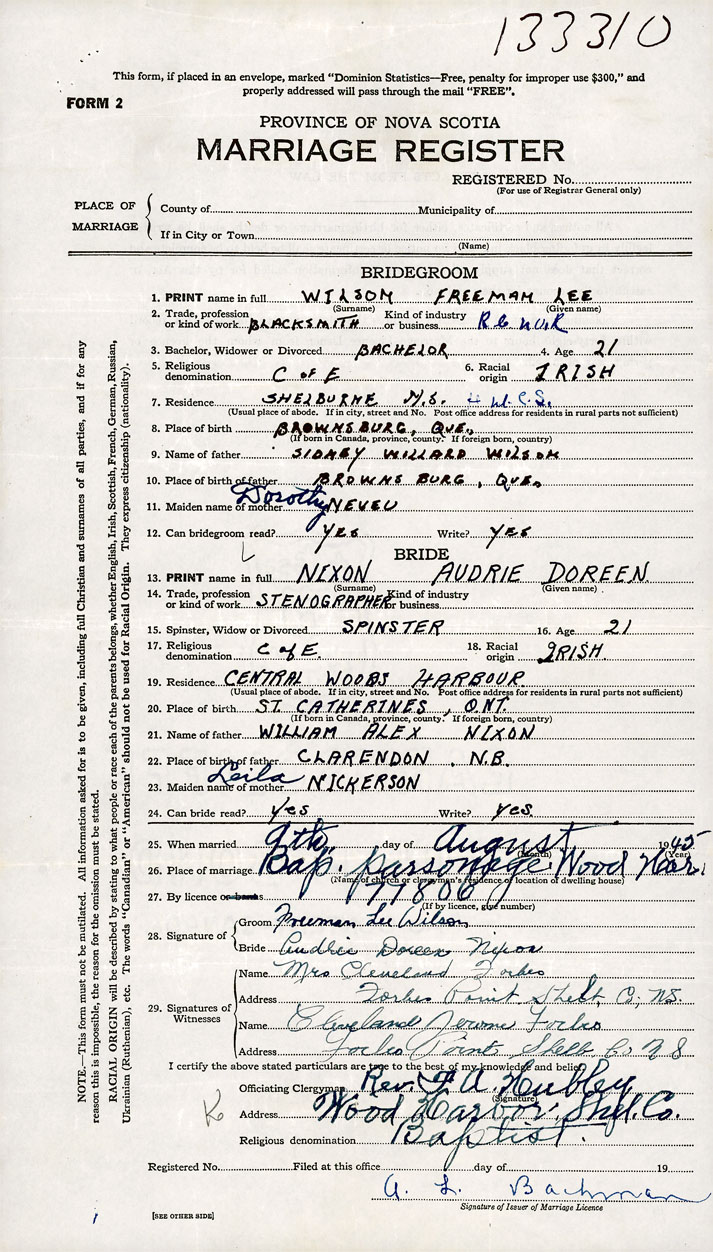 133310
This form, if placed in an envelope, marked "Dominion Statistics—Free, penalty for improper use $300," and
properly addressed will pass through the mail "FREE".
FORM 2
PROVINCE OF NOVA SCOTIA
MARRIAGE REGISTER
REGISTERED No.
(For use of Registrar General only)
PLACE OF MARRIAGE
County of Municipality of
If in City or Town
(Name)
BRIDEGROOM
1. PRINT name in full WILSON FREEMAN LEE
(Surname) (Given name)
2. Trade, profession or kind of work BLACKSMITH Kind of industry or business R.C.N.V.R.
3. Bachelor, Widower or Divorced BACHELOR 4. Age 21
5. Religious denomination C of E 6. Racial origin IRISH
7. Residence SHELBURNE N.S.
(Usual place of abode. If in city, street and No. Post office address for residents in rural parts not sufficient)
8. Place of birth BROWNSBURG, QUE.
(If born in Canada, province, county. If foreign born, country)
9. Name of father SIDNEY WILLARD WILSON
10. Place of birth of father BROWNS BURG, QUE.
11. Maiden name of mother Dorothy NEVEU
12. Can bridegroom read? YES Write? YES
BRIDE
13. PRINT name in full NIXON AUDRIE DOREEN
(Surname) (Given name)
14. Trade, profession or kind of work STENOGRAPHER Kind of industry or business
15. Spinster, Widow or Divorced SPINSTER 16. Age 21
17. Religious denomination C of E. 18. Racial origin IRISH.
19. Residence CENTRAL WOODS HARBOUR
(Usual place of abode. If in city, street and No. Post office address for residents in rural parts not sufficient)
20. Place of birth ST. CATHERINES, ONT.
(If born in Canada, province, county. If foreign born, country)
21. Name of father WILLIAM ALEX NIXON
22. Place of birth of father CLARENDON, N.B.
23. Maiden name of mother Leila NICKERSON
24. Can bride read? Yes Write? Yes.
25. When married 9th day of August 1945
(Month) (Year)
26. Place of marriage Bap. parsonage, Wood Har.
(Name of church or clergyman's residence or location of dwelling house)
27. By licence or banns 77806
(If by licence, give number)
28. Signature of
Groom Freeman Lee Wilson
Bride Audrie Doreen Nixon
29. Signatures of Witnesses
Name Mrs Cleveland Forbes
Address Forbes Point Shelb. Co; N.S.
Name Cleveland Jerome Forbes
Address Forbes Point Shelb Co N S
I certify the above stated particulars are true to the best of my knowledge and belief
Officiating Clergyman Rev. F. A. Hubley
(Signature)
Address Wood Harbor, Shel. Co.
Religious denomination Baptist.
Registered No. Filed at this office day of 19
A. L. Bachman
Signature of Issuer of Marriage Licence
[SEE OTHER SIDE]
NOTE.—This form must not be mutilated. All information asked for is to be given, including full Christian and surnames of all parties, and if for any
reason this is impossible, the reason for the omission must be stated.
RACIAL ORIGIN will be described by stating to what people or race each of the parents belongs, whether English, Irish, Scottish, French, German, Russian,
Ukrainian (Ruthenian), etc. The words "Canadian" or "American" should not be used for Racial Origin. They express citizenship (nationality).